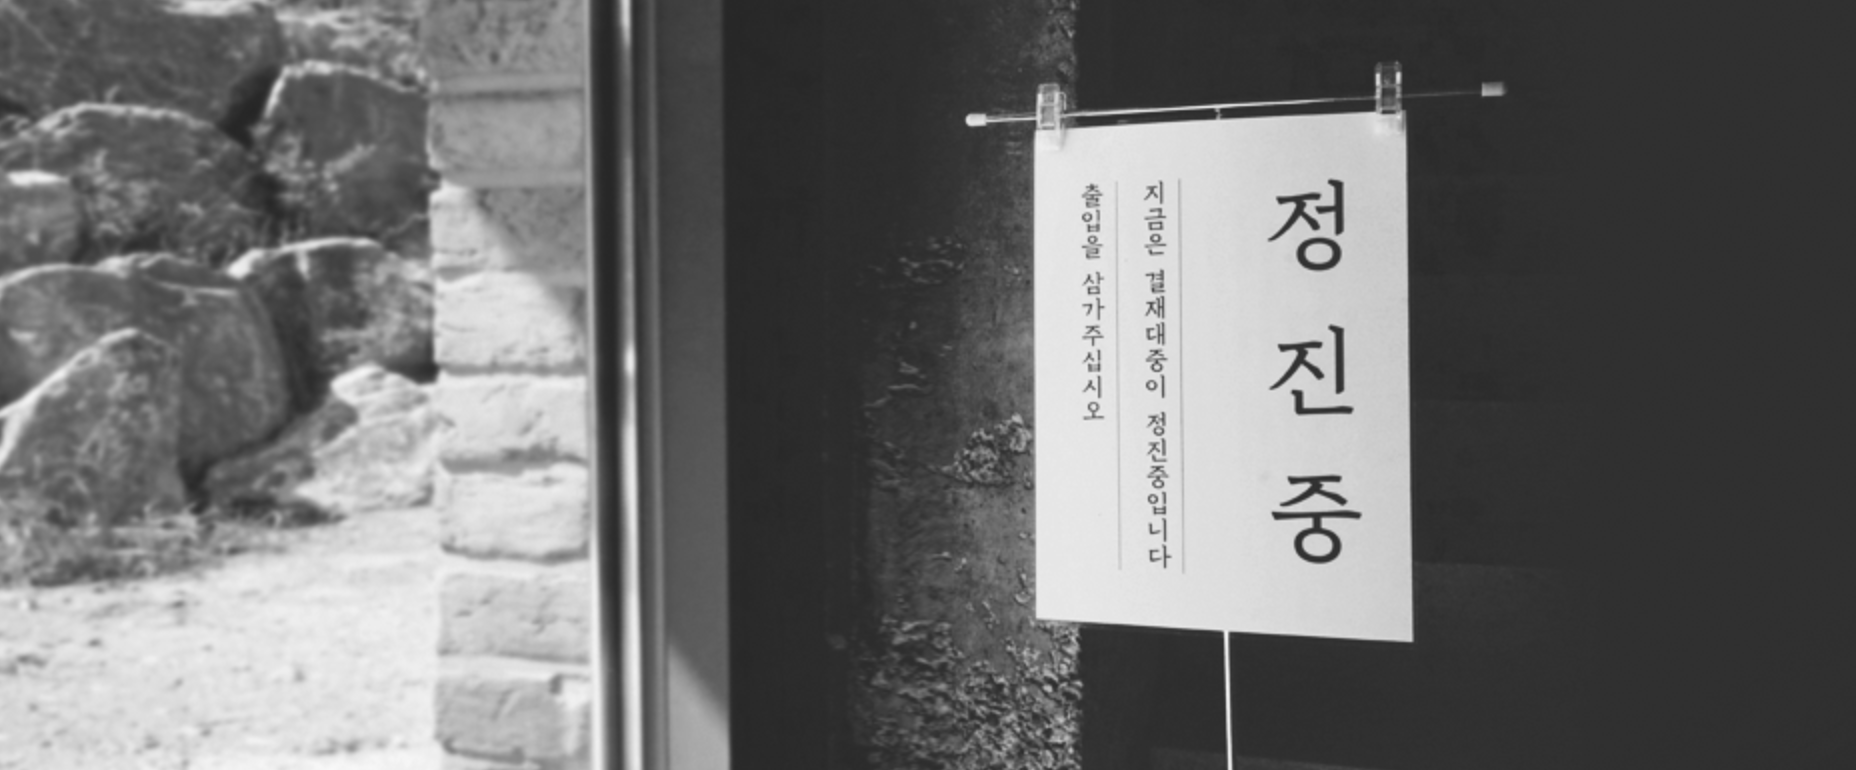 정진중
지금은 결재대중이 정진중입니다
출입을 삼가주십시오